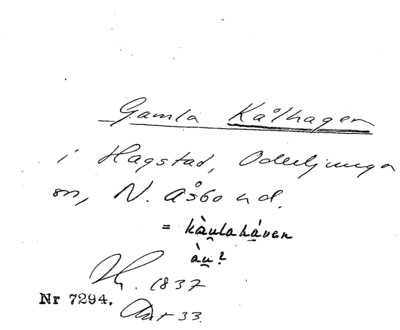 Gamla Kålhagen
i Hagstad, Oderljunga
sn, N. Åsbo hd.
= kàulahá̀ven
àu?
1837
Nr 7294.
Akt 33.